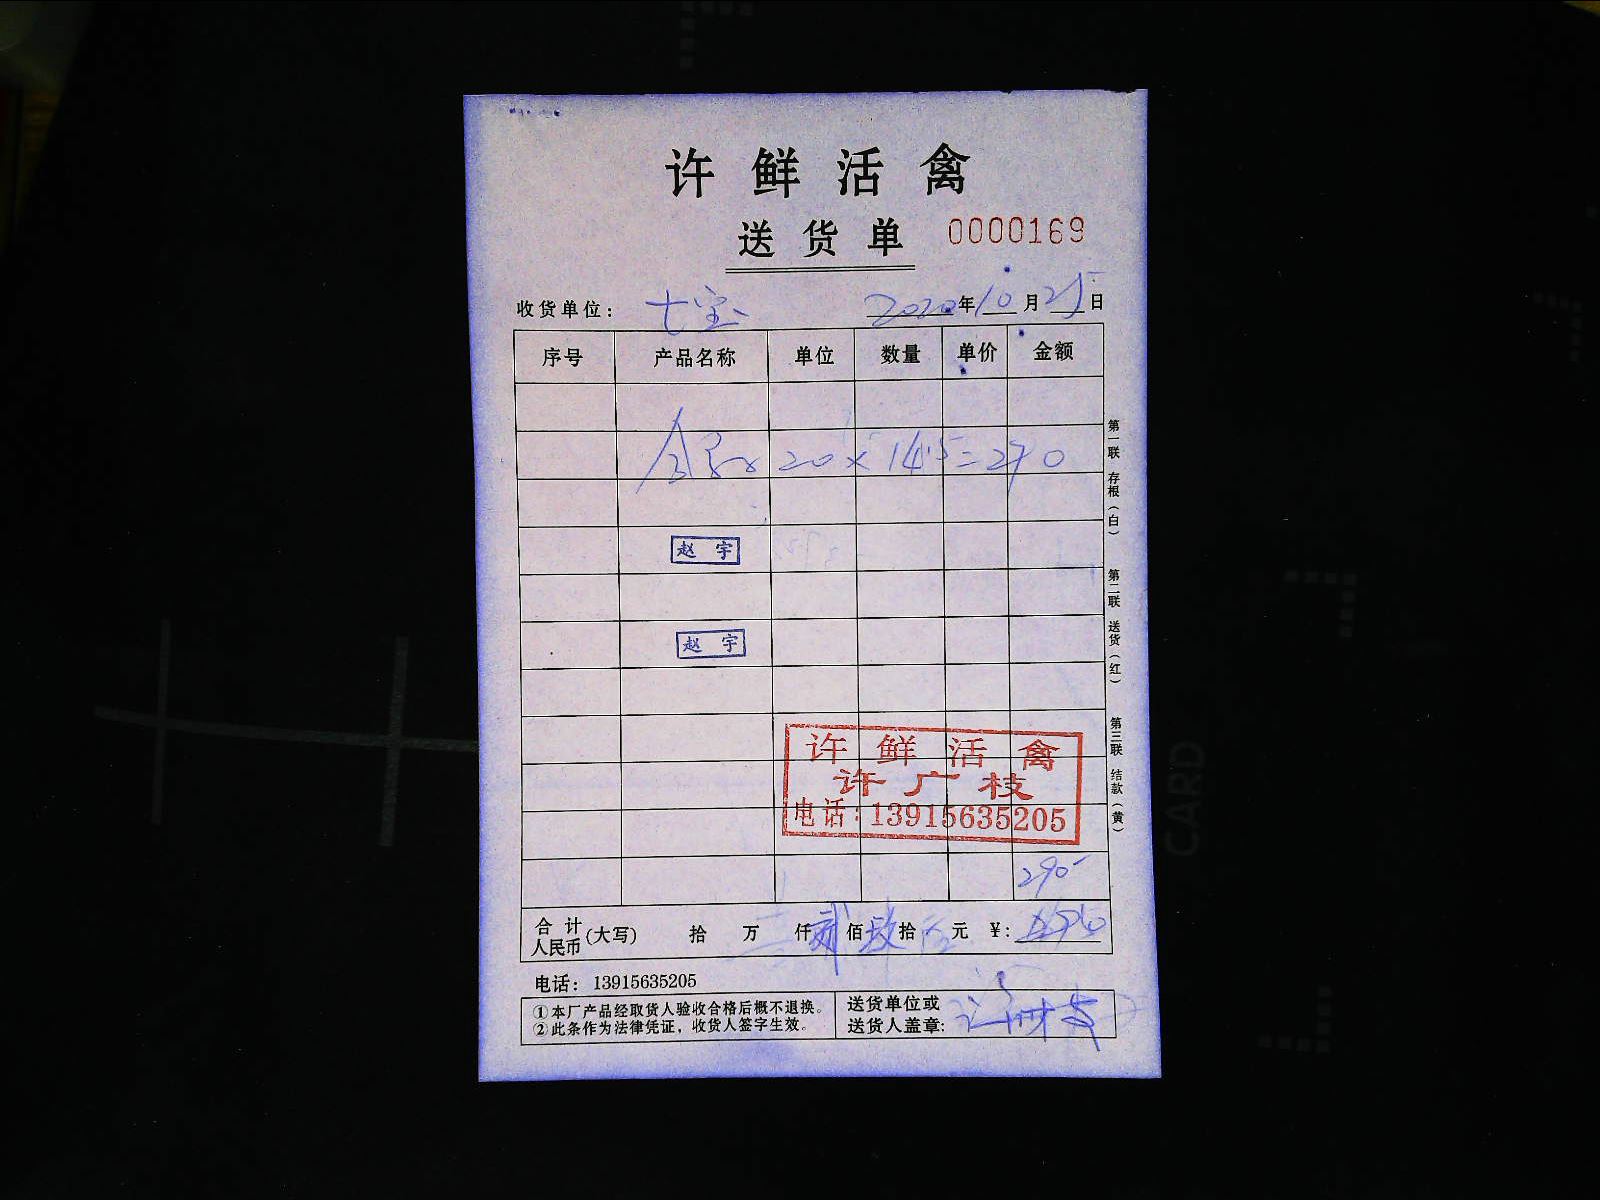 许鲜活禽
送货单 0000169
收货单位: 七宝 2020年10月25日
序号 产品名称 单位 数量 单价 金额
20×14.5=290
赵宇
赵宇
许鲜活禽
许广枝
电话:13915635205
290
合计人民币(大写) 拾 万 仟贰佰玖拾 元 ¥:
电话: 13915635205
①本厂产品经取货人验收合格后概不退换。
②此条作为法律凭证,收货人签字生效。
送货单位或
送货人盖章:
第一联 存根(白) 第二联 送货(红) 第三联 结款(黄)
CARD